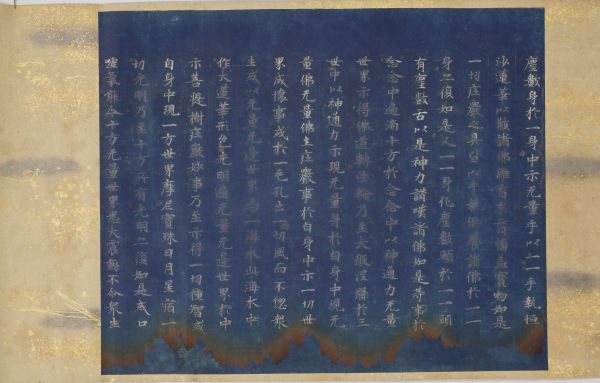 塵數身於一身中示无量手以一一手執恒
沙蓮華以散諸佛雜香末香幡蓋寶物如是
一切莊嚴之具皆以手執供養諸佛於一一
身亦復如是又一一身化塵數頭於一一頭
有塵數舌以是神力讚嘆諸佛如是等事於
念念中遍滿十方於念念中以神通力无量
世界示得佛道轉法輪乃至大般涅槃於三
世中以神通力示現无量身於自身中現无
量佛无量佛土莊嚴事於自身中示一切世
界成壞事或於一毛孔出一切風而不惱衆
生或以无量无邊世界為一海水此海水中
作大蓮華形色光明遍无量无邊世界於中
示菩提樹莊嚴妙事乃至示得一切種智或
自身中現十方世界摩尼寶珠日月星宿一
切光明乃至十方所有光明亦復如是或口
噓氣能令十方无量世界悉大震動不令衆生